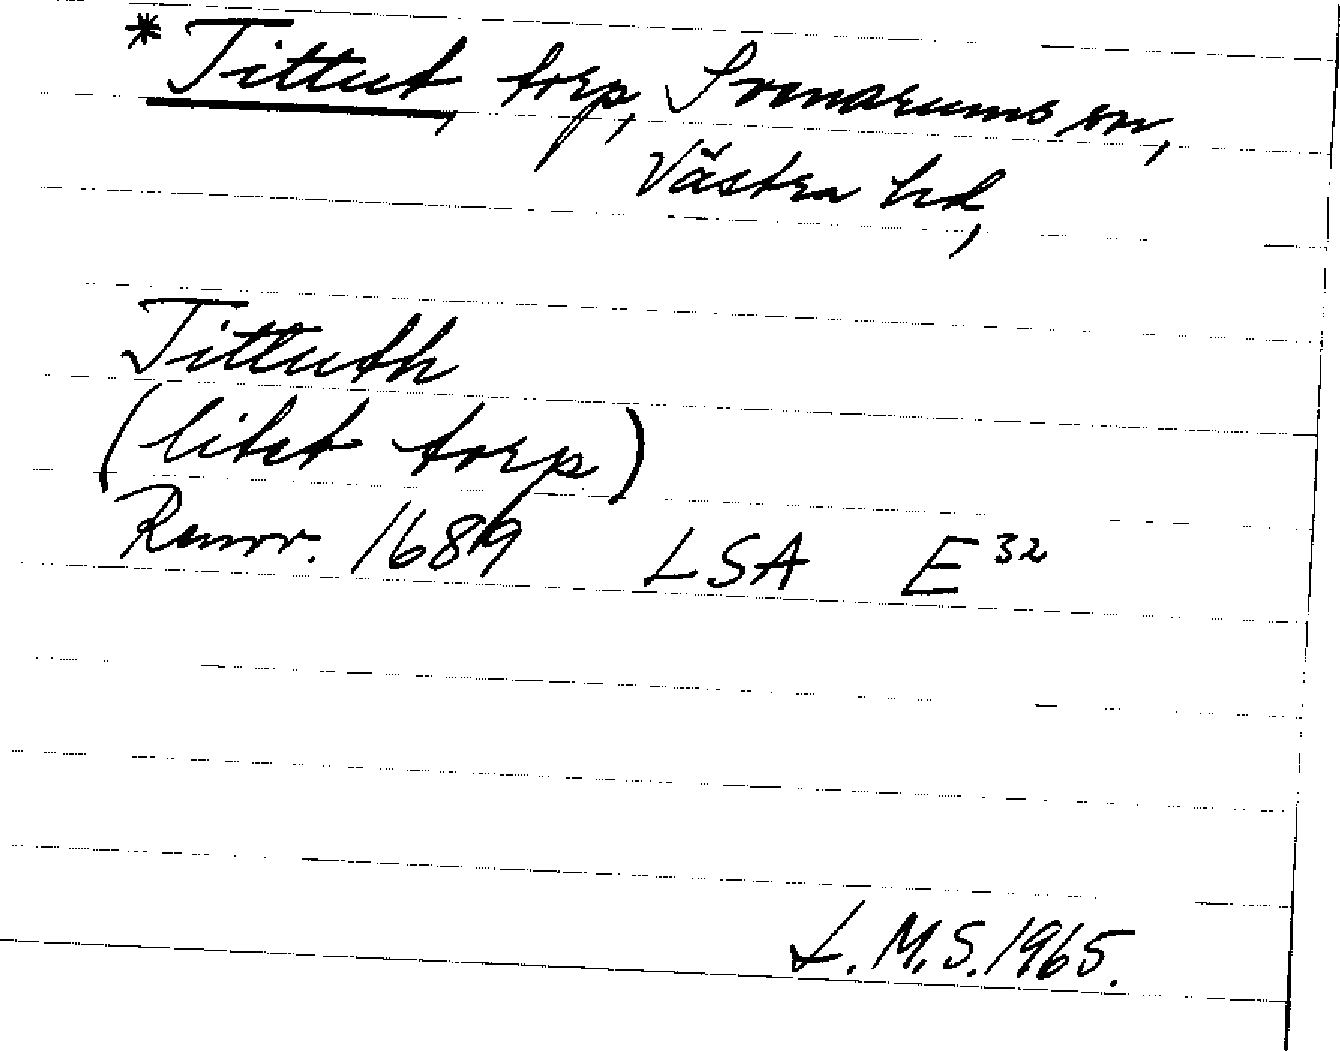 * Tittut, torp, Svenarums sn,
Västra hd,
Tittuth
(litet torp)
Rannr. 1689 LSA E 32
L.M.S. 1965.